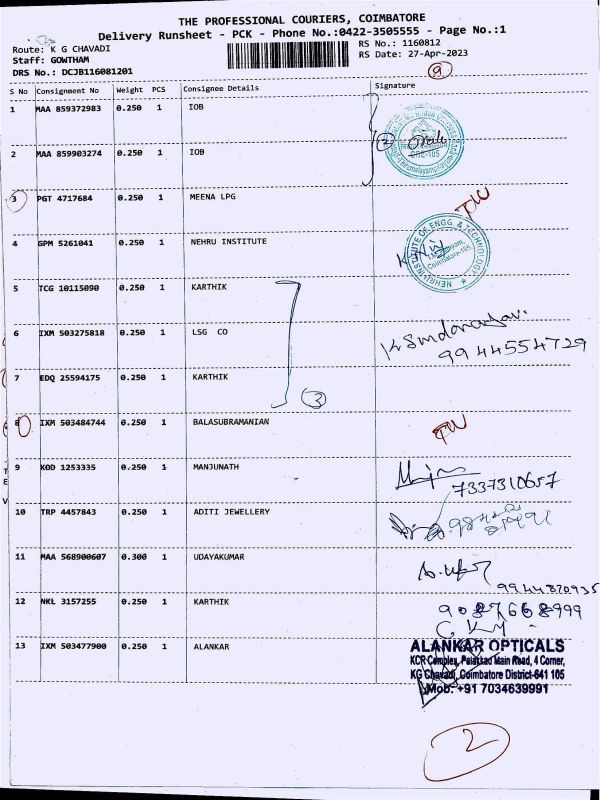 THE PROFESSIONAL COURIERS, COIMBATORE
Delivery Runsheet - PCK - Phone No.:0422-3505555 - Page No.:1
Route: K G CHAVADI
RS No.: 1160812
Staff: GOWTHAM
RS Date: 27-Apr-2023
DRS No.: DCJB116081201
9
S No Consignment No Weight PCS Consignee Details Signature
1 MAA 859372983 0.250 1 IOB
2
CBE-105
2 MAA 859903274 0.250 1 IOB
3 PGT 4717684 0.250 1 MEENA LPG
4 GPM 5261041 0.250 1 NEHRU INSTITUTE
NEHRU INSTITUTE OF ENGG. & TECHNOLOGY
Coimbatore-105
5 TCG 10115090 0.250 1 KARTHIK
6 IXM 503275818 0.250 1 LSG CO
9944554729
7 EDQ 25594175 0.250 1 KARTHIK
3
8 IXM 503484744 0.250 1 BALASUBRAMANIAN
9 KOD 1253335 0.250 1 MANJUNATH
7337310657
10 TRP 4457843 0.250 1 ADITI JEWELLERY
11 MAA 568900607 0.300 1 UDAYAKUMAR
9944370935
12 NKL 3157255 0.250 1 KARTHIK
9087668999
13 IXM 503477900 0.250 1 ALANKAR
ALANKAR OPTICALS
KCR Complex, Palakkad Main Road, 4 Corner,
KG Chavadi, Coimbatore District-641 105
Mob: +91 7034639991
2